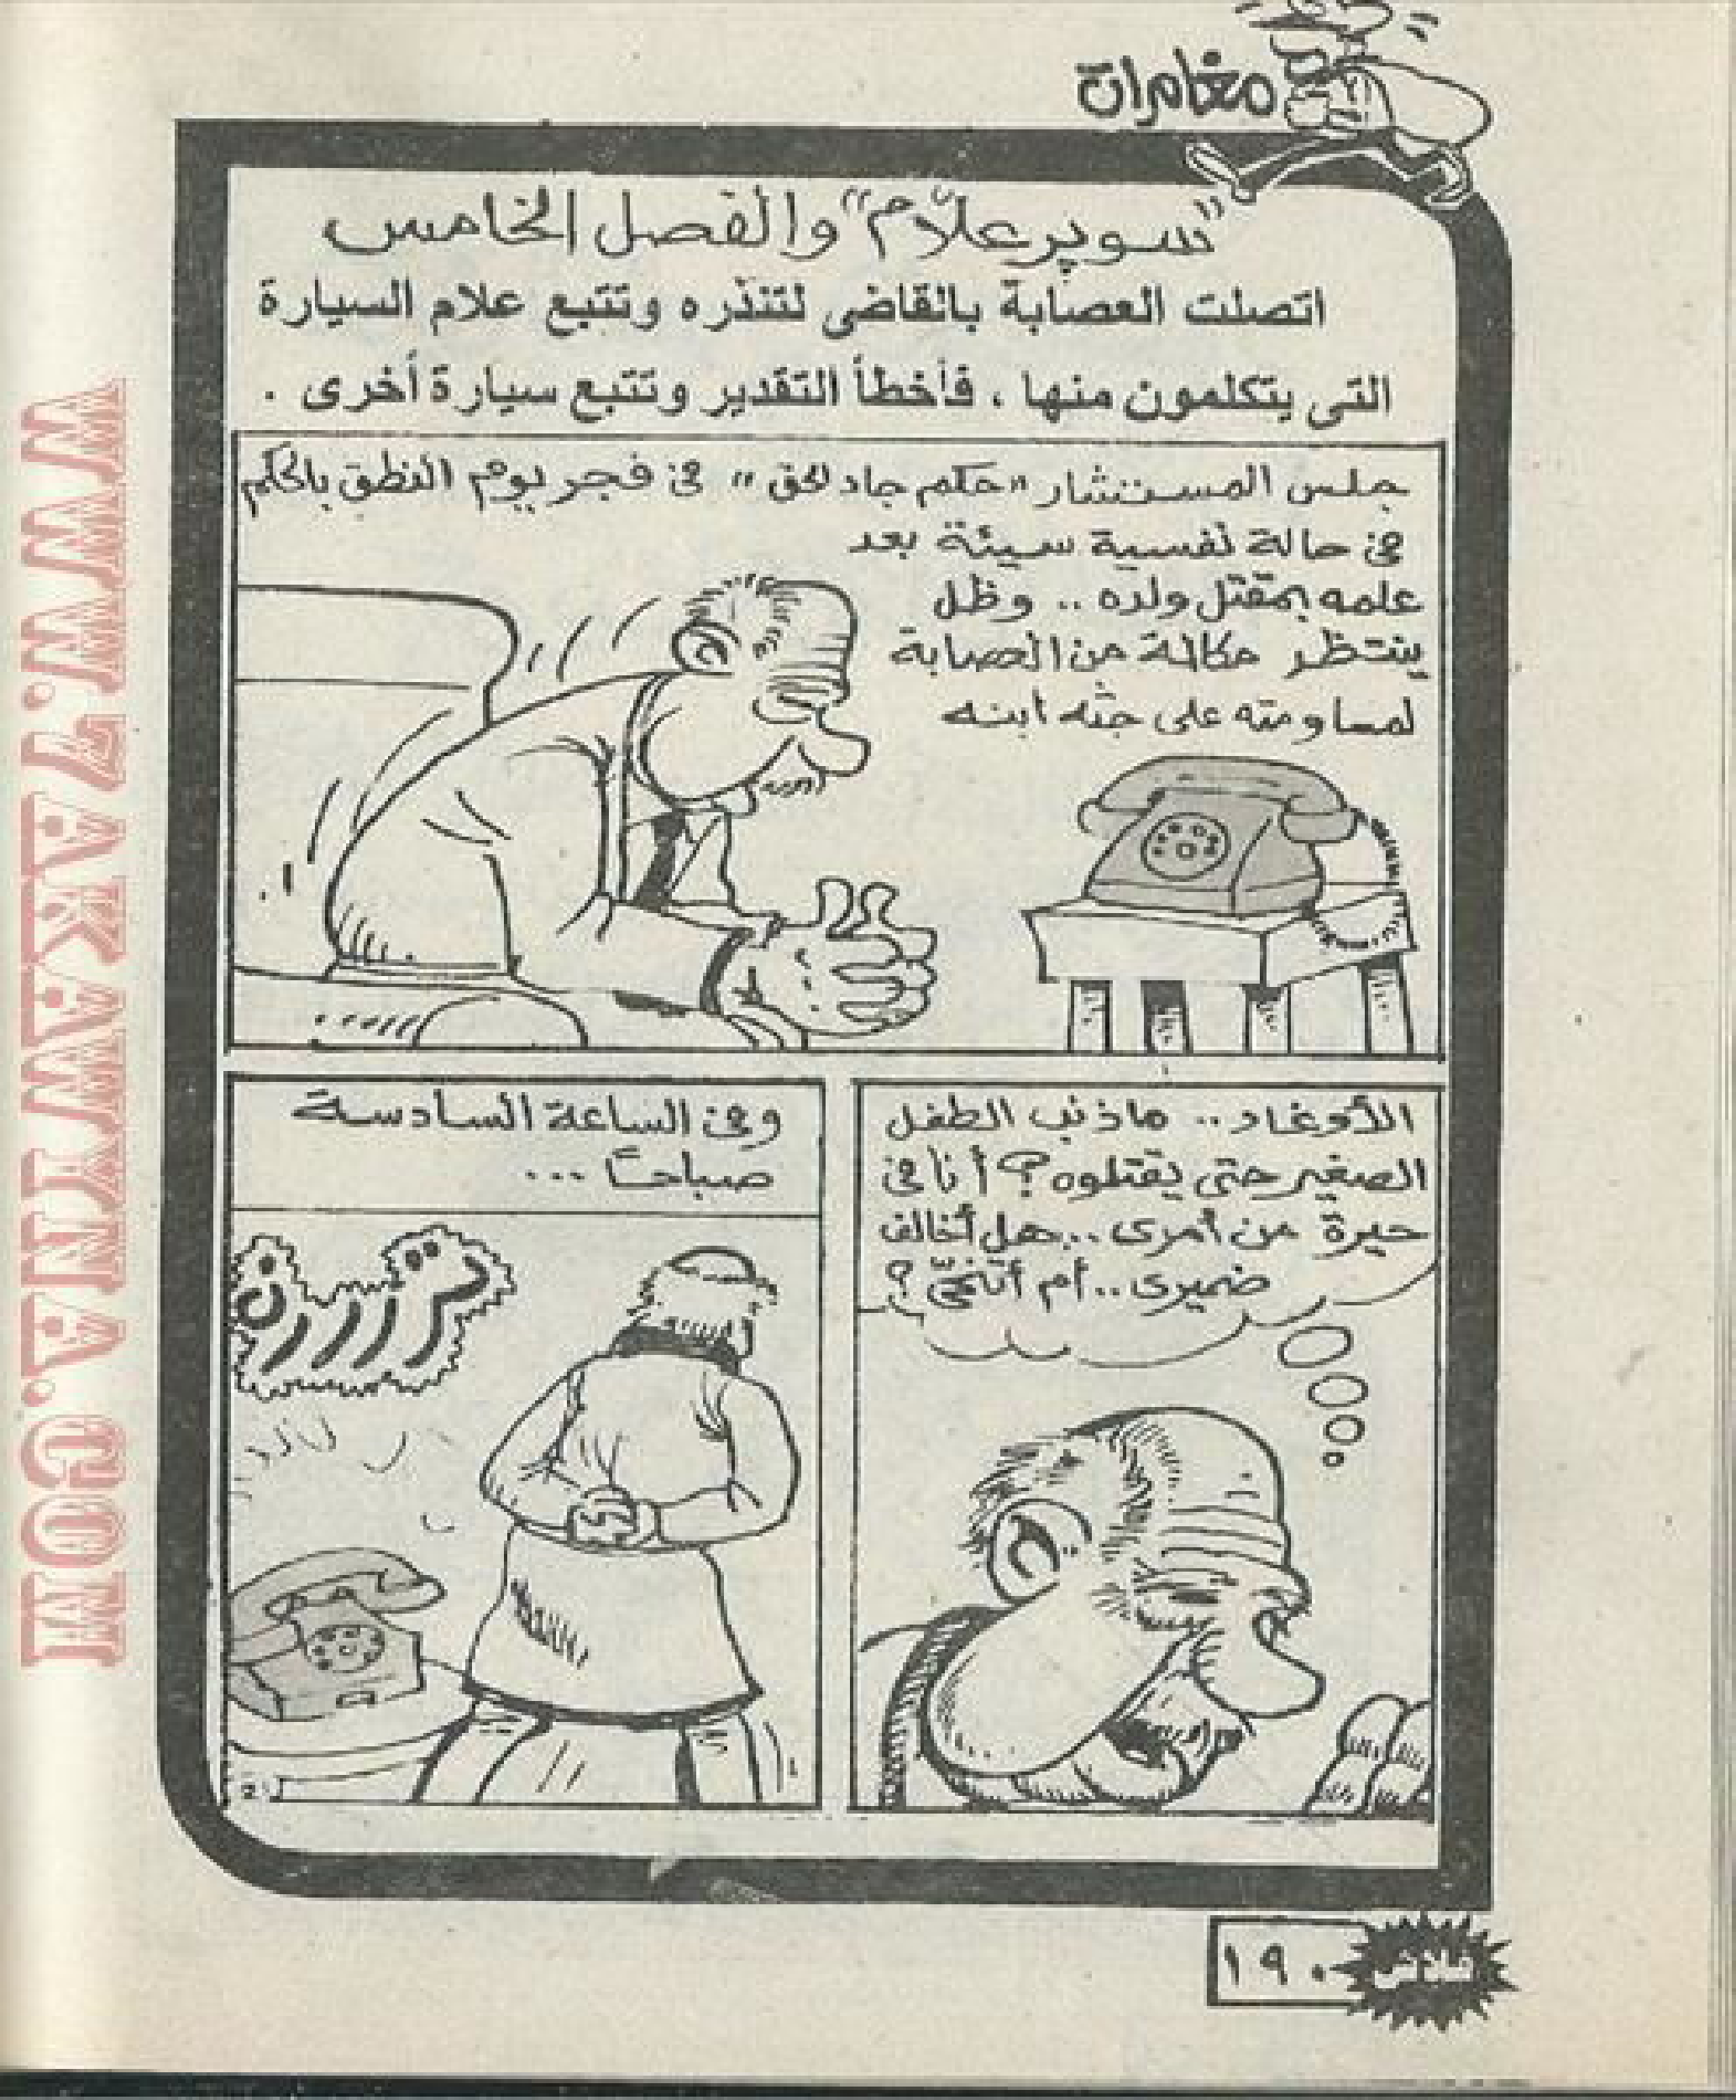 مغامرات
"سوبر علّام" والفصل الخامس
اتصلت العصابة بالقاضى لتنذره وتتبع علام السيارة
التى يتكلمون منها ، فأخطأ التقدير وتتبع سيارة أخرى .
جلس المستشار "حكم جاد لحق" فى فجر يوم النطق بالحكم
فى حالة نفسية سيئة بعد
علمه بمقتل ولده .. وظل
ينتظر مكالمة من العصابة
لمساومته على جثه ابنه
الأوغاد .. ماذنب الطفل
الصغير حتى يقتلوه ؟ أنا فى
حيرة من أمرى .. هل أخالف
ضميرى .. أم أتنحىّ ؟
وفى الساعة السادسة
صباحًا ...
ترررن
فلاش
١٩٠
WWW.7AKAWINA.COM